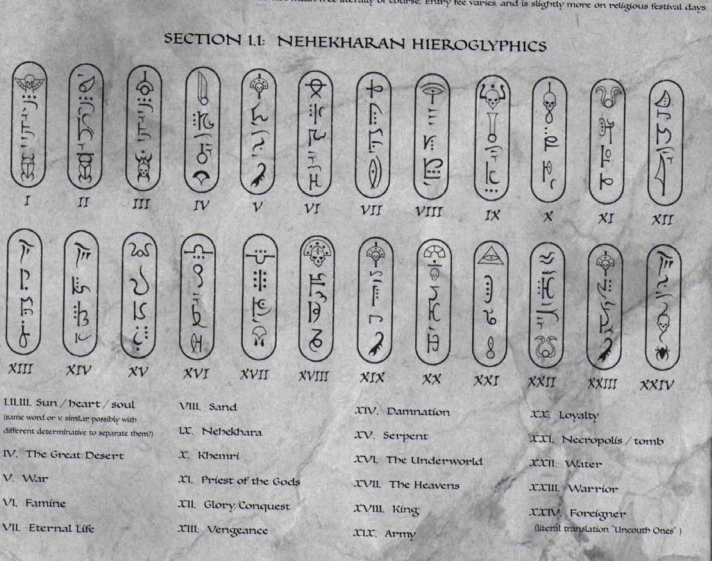 Entry fee varies, and is slightly more on religious festival days.
SECTION I.I: NEHEKHARAN HIEROGLYPHICS
I II III IV V VI VII VIII IX X XI XII
XIII XIV XV XVI XVII XVIII XIX XX XXI XXII XXIII XXIV
I,II,III. Sun / heart / soul
(same word or v. similar, possibly with
different determinative to separate them?)
IV. The Great Desert
V. War
VI. Famine
VII. Eternal Life
VIII. Sand
IX. Nehekhara
X. Khemri
XI. Priest of the Gods
XII. Glory/Conquest
XIII. Vengeance
XIV. Damnation
XV. Serpent
XVI. The Underworld
XVII. The Heavens
XVIII. King
XIX. Army
XX. Loyalty
XXI. Necropolis / tomb
XXII. Water
XXIII. Warrior
XXIV. Foreigner
(literal translation "Uncouth Ones" )